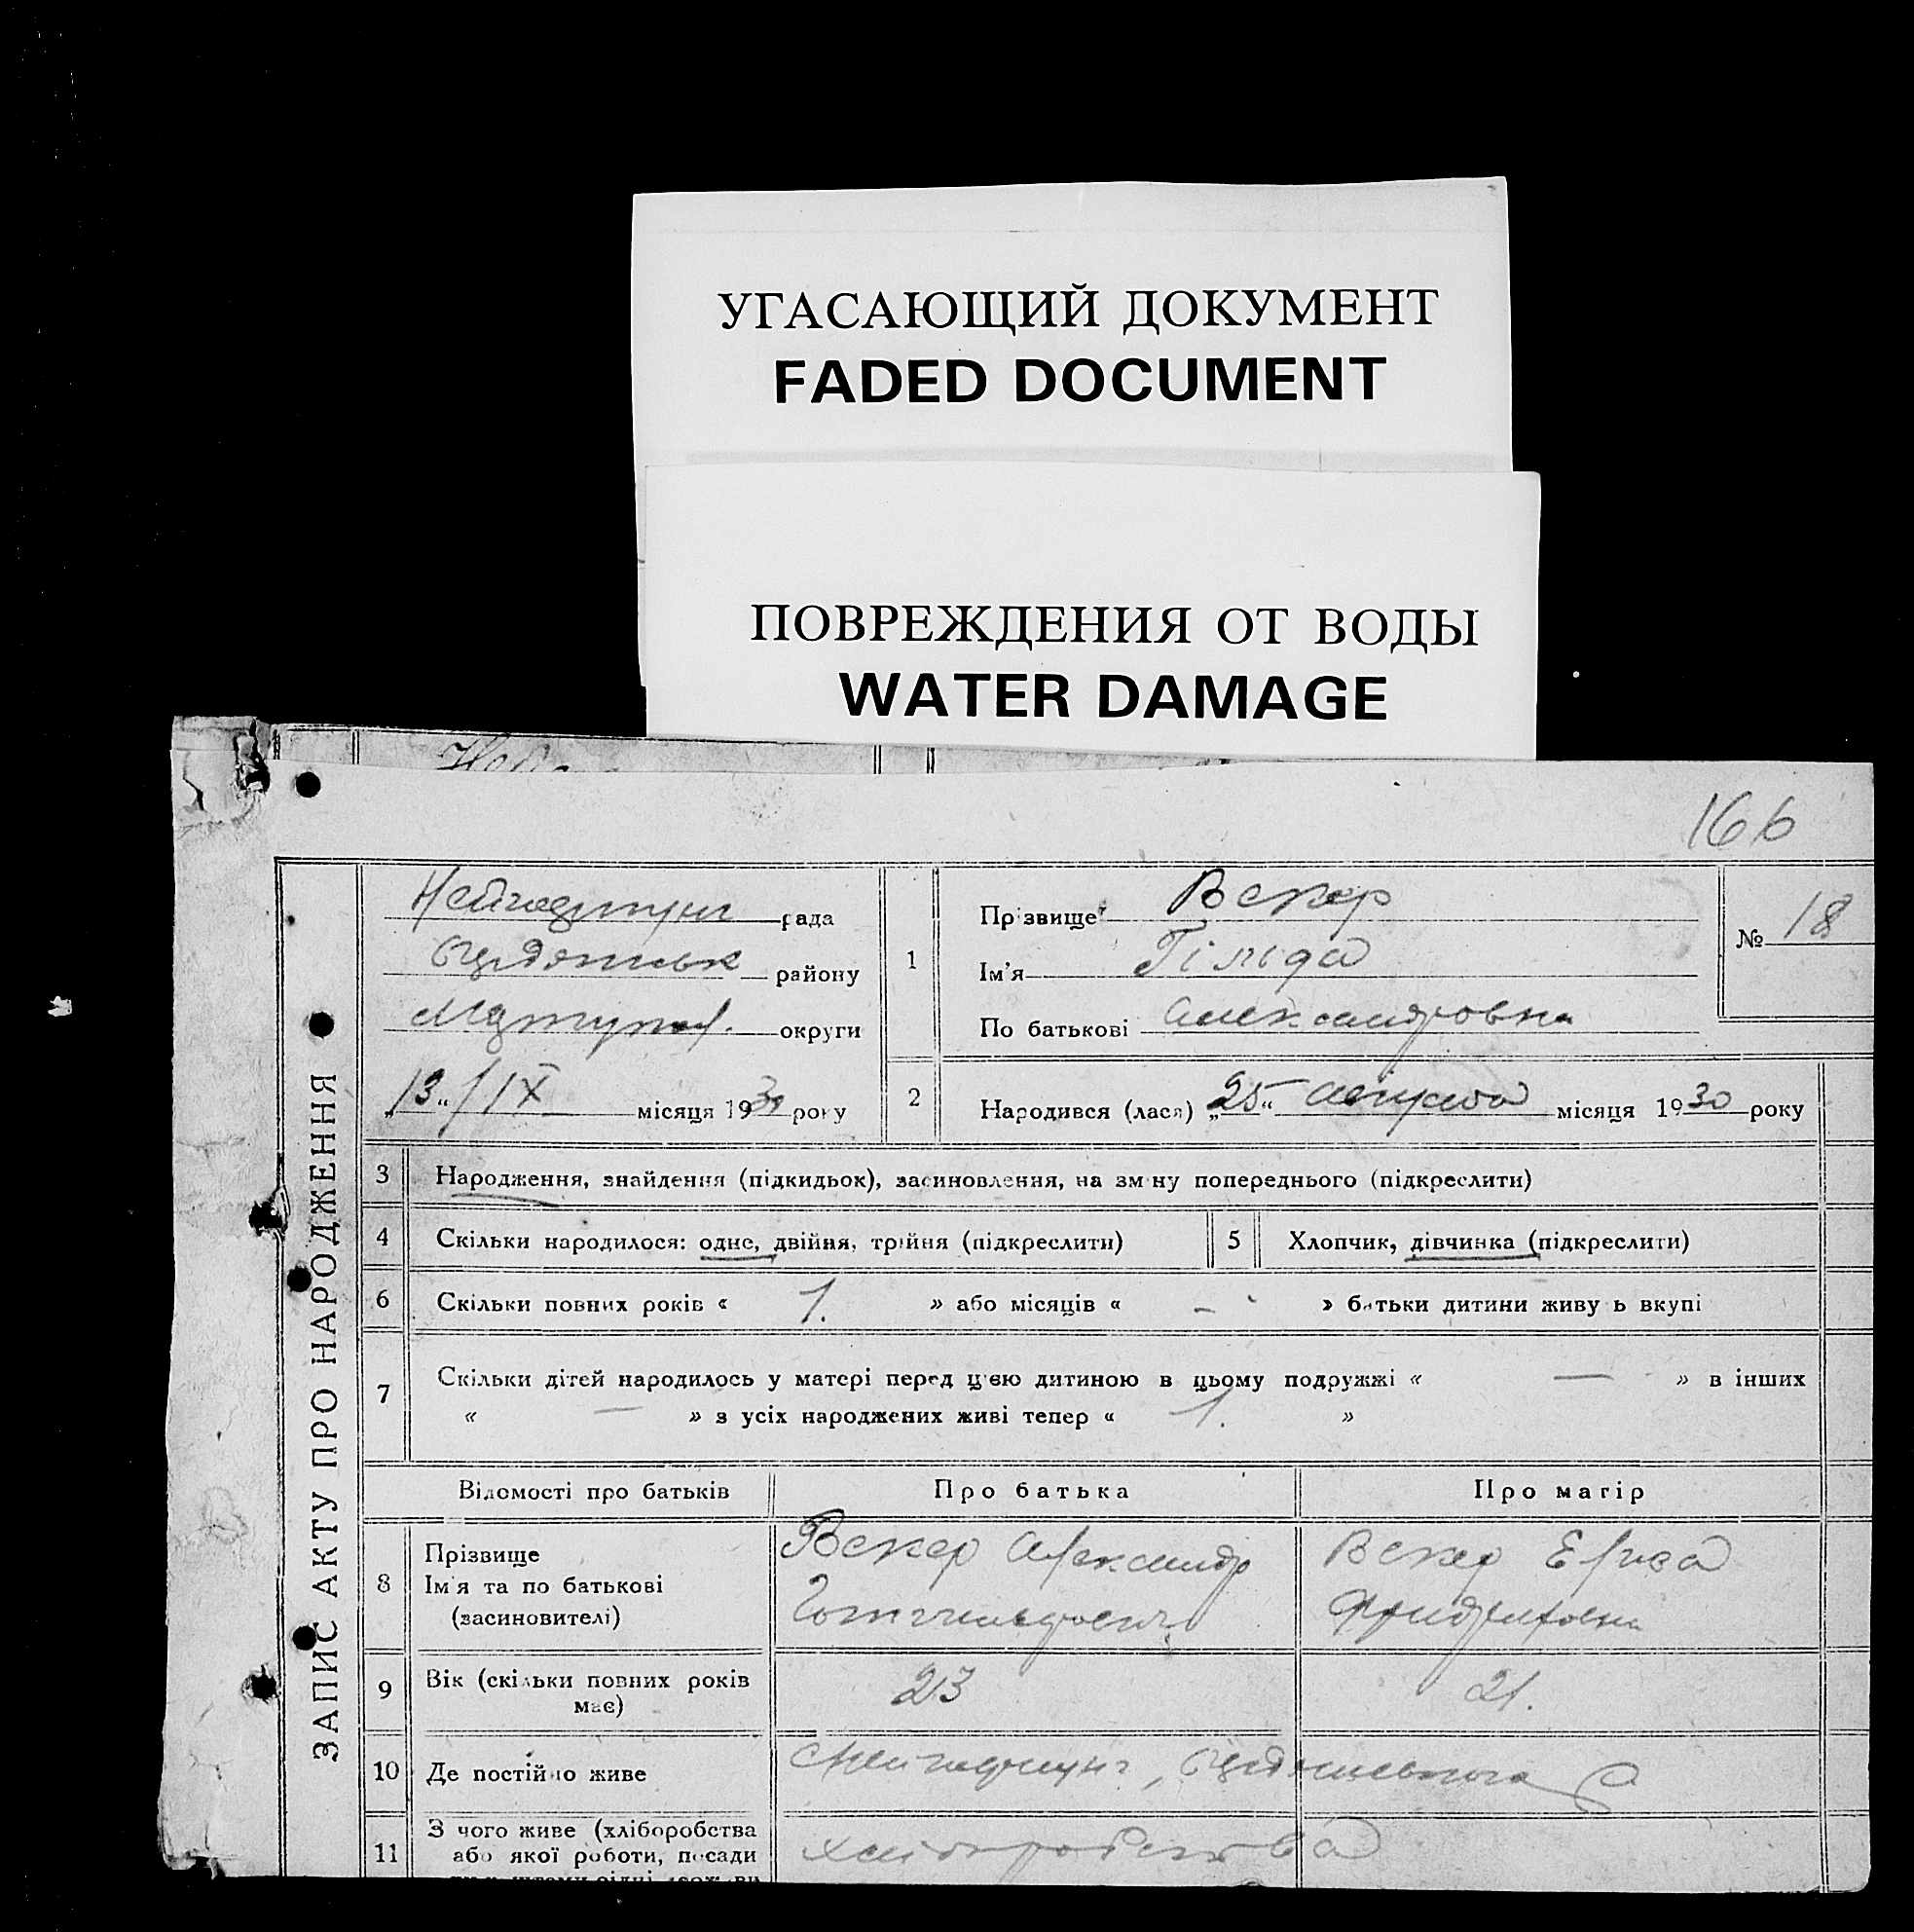 УГАСАЮЩИЙ ДОКУМЕНТ
FADED DOCUMENT
ПОВРЕЖДЕНИЯ ОТ ВОДЫ
WATER DAMAGE
166
ЗАПИС АКТУ ПРО НАРОДЖЕННЯ
рада
району
округи
„13“/IX місяця 1930 року
1
Прізвище Векер
Ім'я Гільда
По батькові Александровна
№ 18
2
Народився (лася) „25“ августа місяця 1930 року
3 Народження, знайдення (підкидьок), засиновлення, на зміну попереднього (підкреслити)
4 Скільки народилося: одне, двійня, трійня (підкреслити) 5 Хлопчик, дівчинка (підкреслити)
6 Скільки повних років « 1. » або місяців « - » батьки дитини живуть вкупі
7 Скільки дітей народилось у матері перед цією дитиною в цьому подружжі « — » в інших
« — » з усіх народжених живі тепер « 1. »
Відомості про батьків Про батька Про матір
8 Прізвище Векер Александр Векер Елиза
Ім'я та по батькові
(засиновителі)
9 Вік (скільки повних років має) 23 21.
10 Де постійно живе
11 З чого живе (хліборобства
або якої роботи, посади
хліборобства